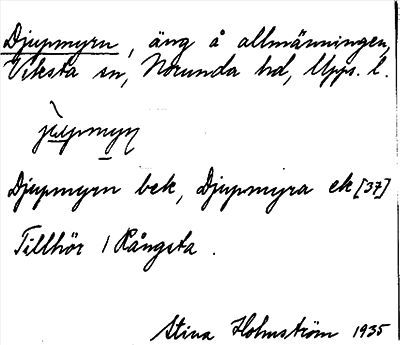 Djupmyrn, äng å allmänningen,
Viksta sn, Norunda hd, Upps. l.
Djupmyrn bek, Djupmyra ek [37]
Tillhör 1 Rångsta.
Stina Holmström 1935